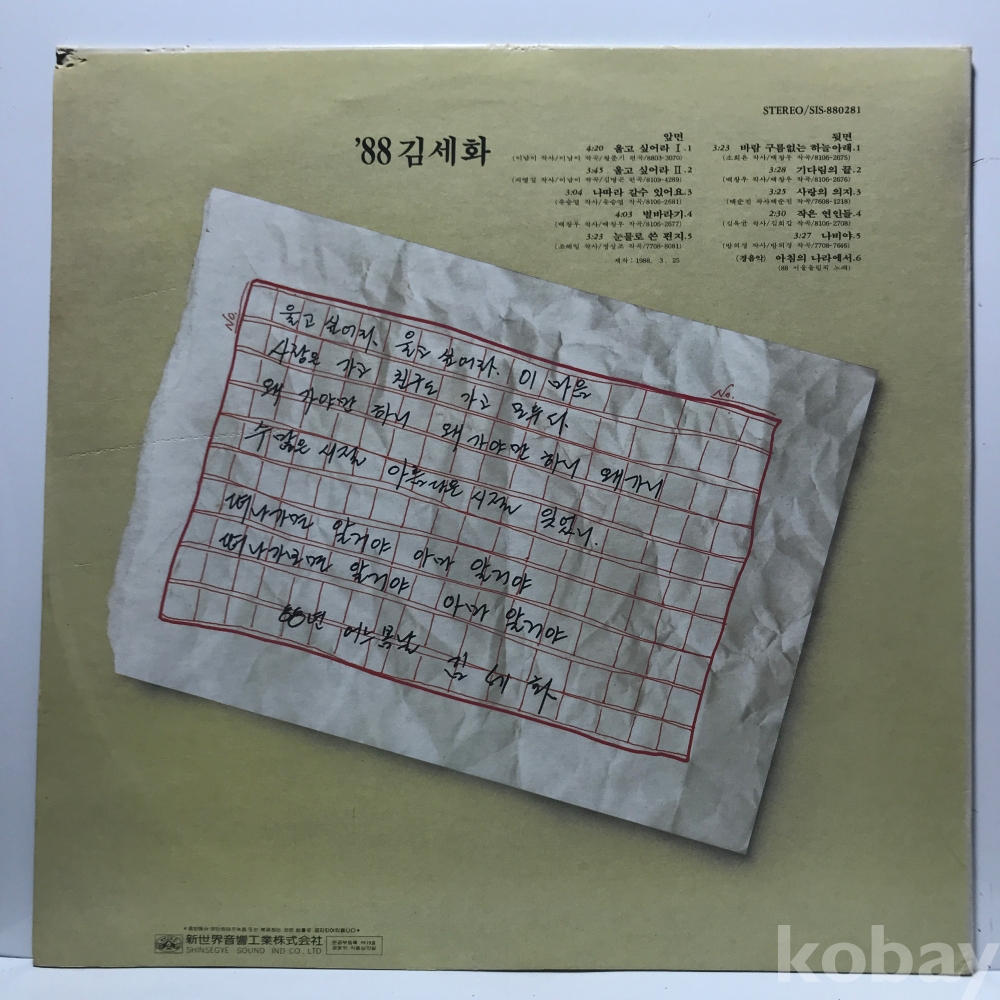 STEREO/SIS-880281
'88 김세화
앞면
4:20 울고 싶어라 Ⅰ.1
(이남이 작사/이남이 작곡/최춘기 편곡/8803-3070)
3:45 울고 싶어라 Ⅱ.2
3:04 나따라 갈수 있어요.3
(유승엽 작사/유승엽 작곡/8106-2681)
4:03 별바라기.4
(백창우 작사/백창우 작곡/8106-2677)
3:23 눈물로 쓴 편지.5
(조해일 작사/정성조 작곡/7708-8081)
제작:1988. 3. 25
뒷면
3:23 바람 구름없는 하늘아래.1
(소희은 작사/백창우 작곡/8106-2675)
3:28 기다림의 끝.2
(백창우 작사/백창우 작곡/8106-2676)
3:25 사랑의 의지.3
(백순진 작사백순진 작곡/7606-1218)
2:30 작은 연인들.4
(김욱균 작사/김희갑 작곡/8106-2708)
3:27 나비야.5
(방의경 작사/방의경 작곡/7708-7646)
(경음악) 아침의 나라에서.6
(88 서울올림픽 노래)
No.
No.
울고 싶어라. 울고 싶어라. 이 마음
사랑은 가고 친구도 가고 모두 다.
왜 가야만 하니 왜 가야만 하니 왜 가니
수많은 시절 아름다운 시절 잊었니.
떠나가면 알거야 아마 알거야
떠나가보면 알거야 아마 알거야
88년 어느 봄날
김 세 화
新世界音響工業株式会社
SHINSEGYE SOUND IND CO., LTD
kobay